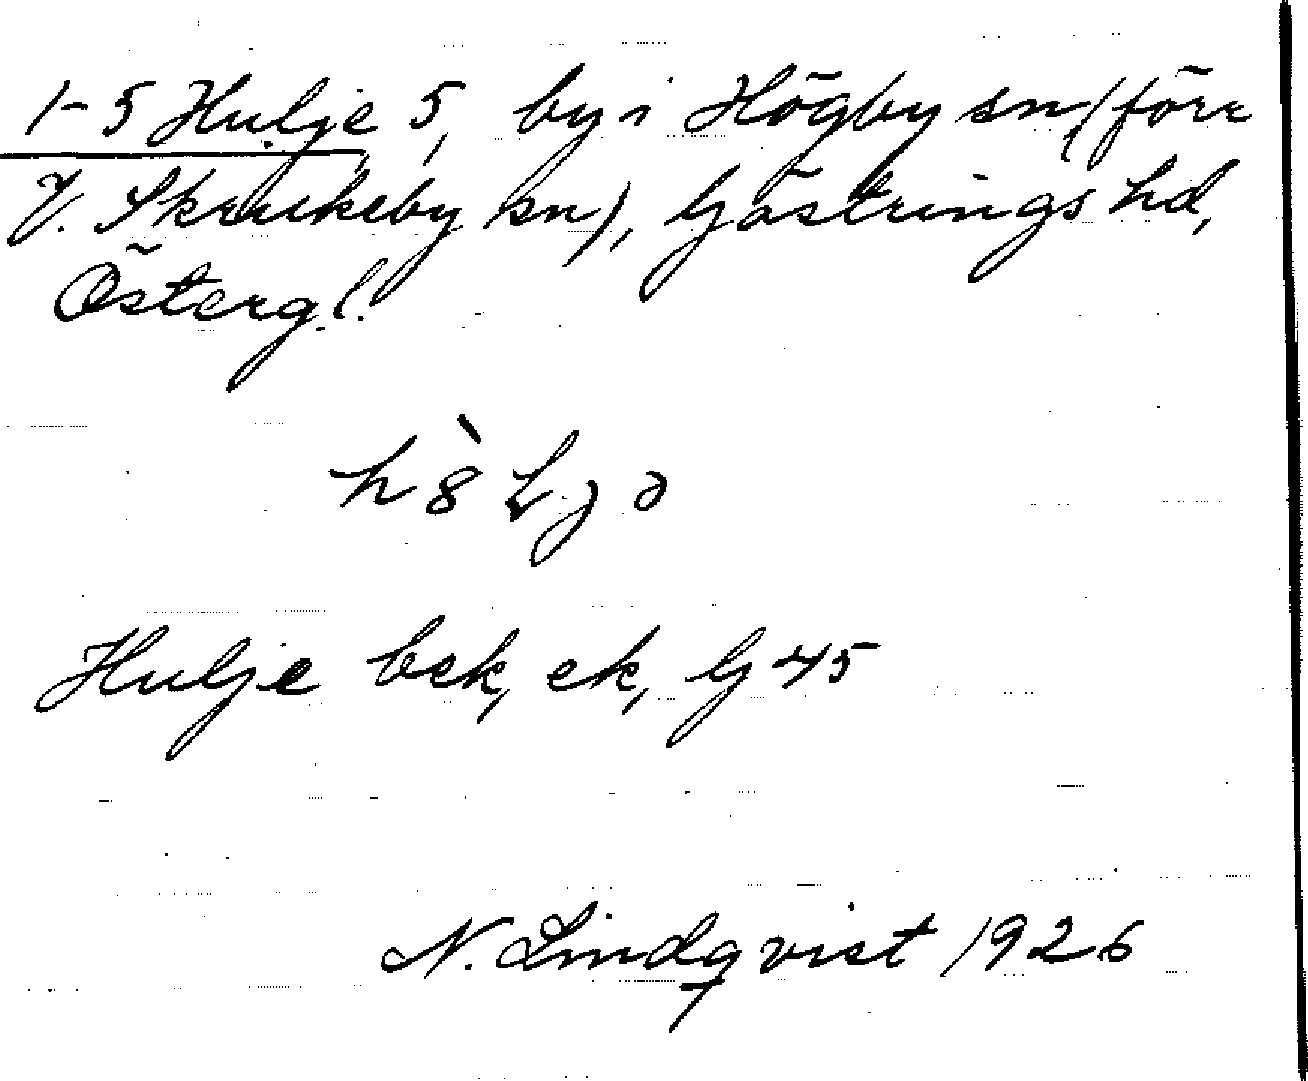 1-5 Hulje 5, by i Högby sn, (förr
V. Skrukeby sn), Göstrings hd,
Österg.l.
hə̀ Ljə
Hulje bek, ek, bj 45
N. Lindqvist 1926